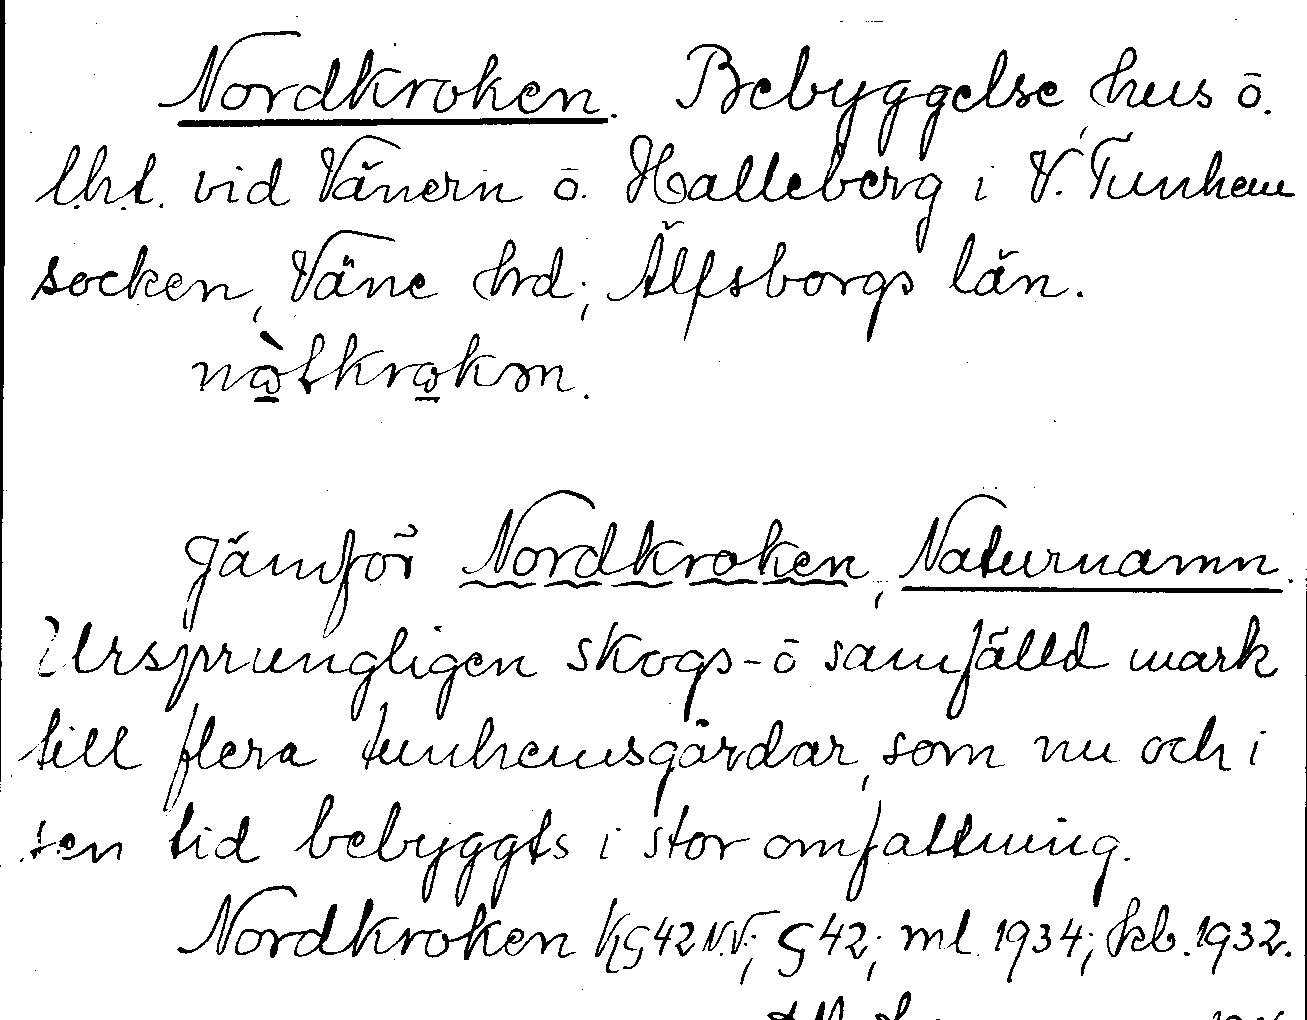 Nordkroken. Bebyggelse, hus ō.
l.h.t. vid Vänern ō. Halleberg i V. Tunhem
socken, Väne hrd; Älfsborgs län.
nò̱tkro̱kən.
Jämför Nordkroken, Naturnamn.
Ursprungligen skogs- ō samfälld mark
till flera tunhemsgårdar, som nu och i
sen tid bebyggts i stor omfattning.
Nordkroken KG42N.V; G42; ml 1934; 1932.